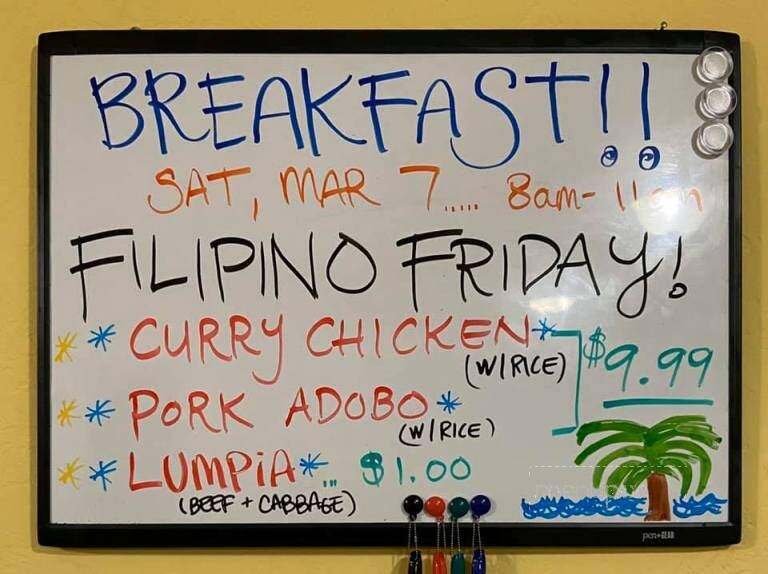 BREAKFAST!!
SAT, MAR 7..... 8am- 11am
FILIPINO FRIDAY!
* * CURRY CHICKEN*
(W/RICE)
$9.99
* * PORK ADOBO*
(W/RICE)
* * LUMPIA*... $1.00
(BEEF + CABBAGE)
pen+GEAR